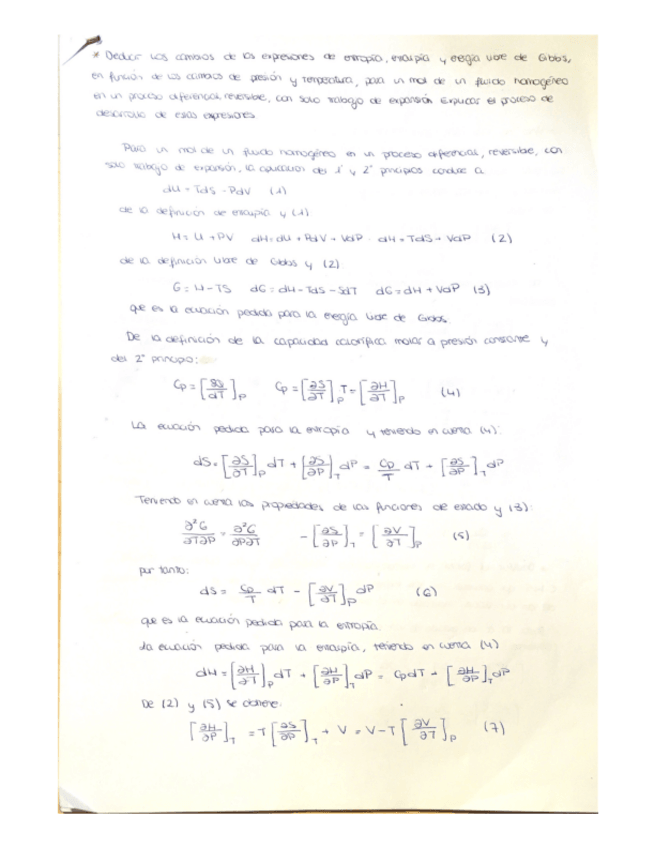 * Deducir los cambios de las expresiones de entropía, entalpía y energía libre de Gibbs,
en función de los cambios de presión y temperatura, para un mol de un fluido homogéneo
en un proceso diferencial, reversible, con solo trabajo de expansión. Explicar el proceso de
desarrollo de estas expresiones.
Para un mol de un fluido homogéneo en un proceso diferencial, reversible, con
solo trabajo de expansión, la aplicación del 1º y 2º principios conduce a
dU = TdS - PdV (1)
de la definición de entalpía y (1)
H = U + PV dH = dU + PdV + VdP dH = TdS + VdP (2)
de la definición libre de Gibbs y (2)
G = H - TS dG = dH - TdS - SdT dG = dH + VdP (3)
que es la ecuación pedida para la energía libre de Gibbs.
De la definición de la capacidad calorífica molar a presión constante y
del 2º principio:
Cp = [δQ/dT]P Cp = [∂S/∂T]P T = [∂H/∂T]P (4)
La ecuación pedida para la entropía y teniendo en cuenta (4):
dS = [∂S/∂T]P dT + [∂S/∂P]T dP = Cp/T dT + [∂S/∂P]T dP
Teniendo en cuenta las propiedades de las funciones de estado y (3):
∂²G/∂T∂P = ∂²G/∂P∂T - [∂S/∂P]T = [∂V/∂T]P (5)
por tanto:
dS = Cp/T dT - [∂V/∂T]P dP (6)
que es la ecuación pedida para la entropía.
La ecuación pedida para la entalpía, teniendo en cuenta (4)
dH = [∂H/∂T]P dT + [∂H/∂P]T dP = CpdT + [∂H/∂P]T dP
De (2) y (5) se obtiene:
[∂H/∂P]T = T[∂S/∂P]T + V = V - T[∂V/∂T]P (7)